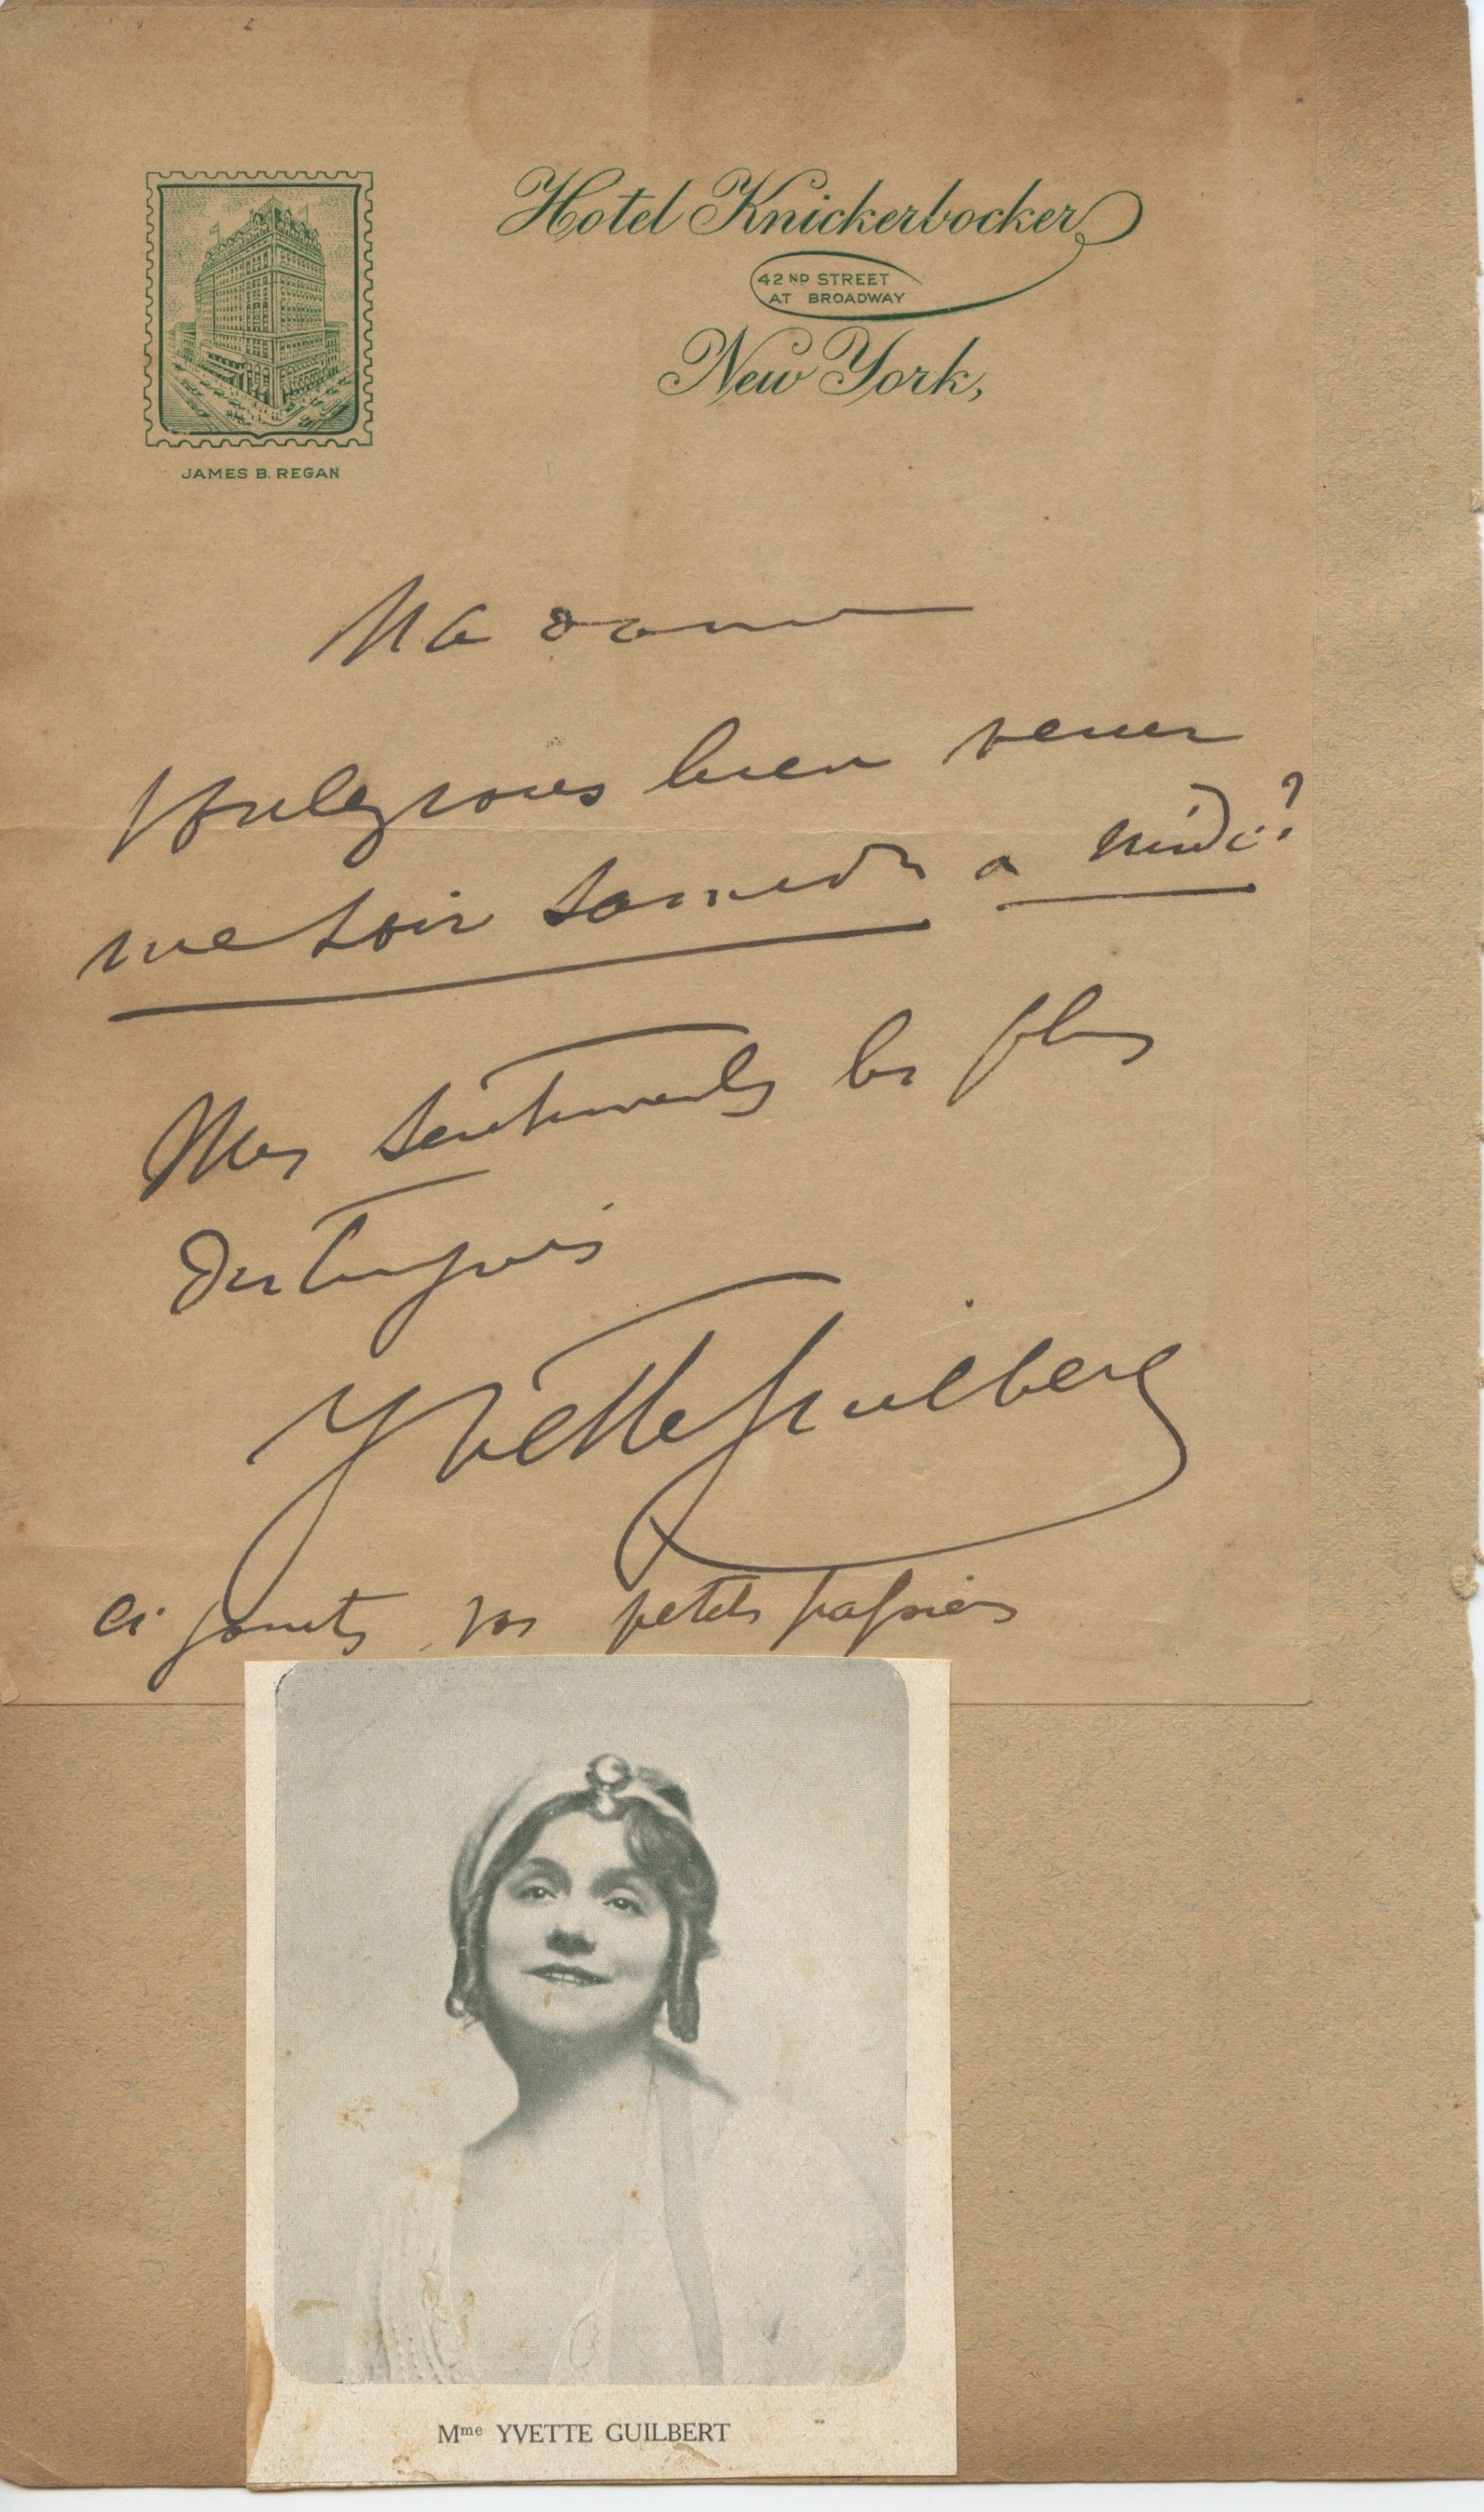 Hotel Knickerbocker
42ND STREET
AT BROADWAY
New York,
JAMES B. REGAN
Madame
Voulez vous bien venir
me voir samedi a midi?
Mes sentiments les plus
distingués
Yvette Guilbert
ci joints vos petits papiers
Mme YVETTE GUILBERT